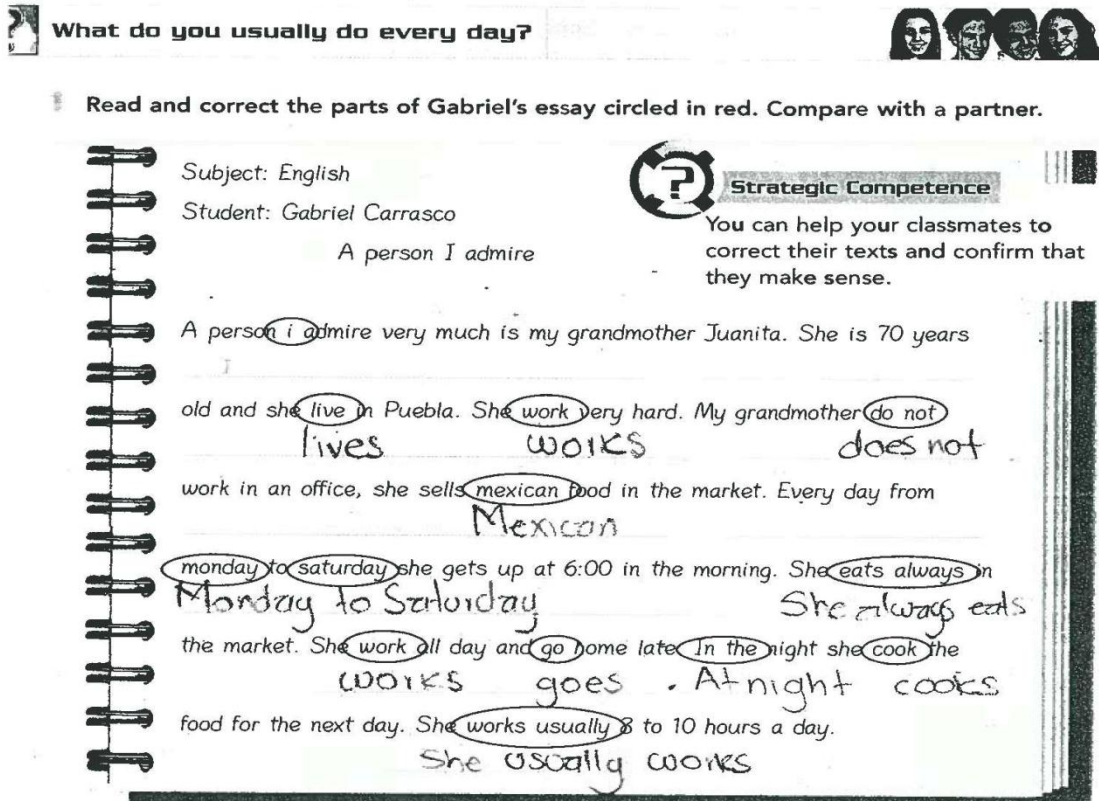 What do you usually do every day?
Read and correct the parts of Gabriel's essay circled in red. Compare with a partner.
Subject: English
Student: Gabriel Carrasco
A person I admire
?
Strategic Competence
You can help your classmates to
correct their texts and confirm that
they make sense.
A person i admire very much is my grandmother Juanita. She is 70 years
I
old and she live in Puebla. She work very hard. My grandmother do not
lives works does not
work in an office, she sells mexican food in the market. Every day from
Mexican
monday to saturday she gets up at 6:00 in the morning. She eats always in
Monday to Saturday She always eats
the market. She work all day and go home late In the night she cook the
works goes . At night cooks
food for the next day. She works usually 8 to 10 hours a day.
She usually works